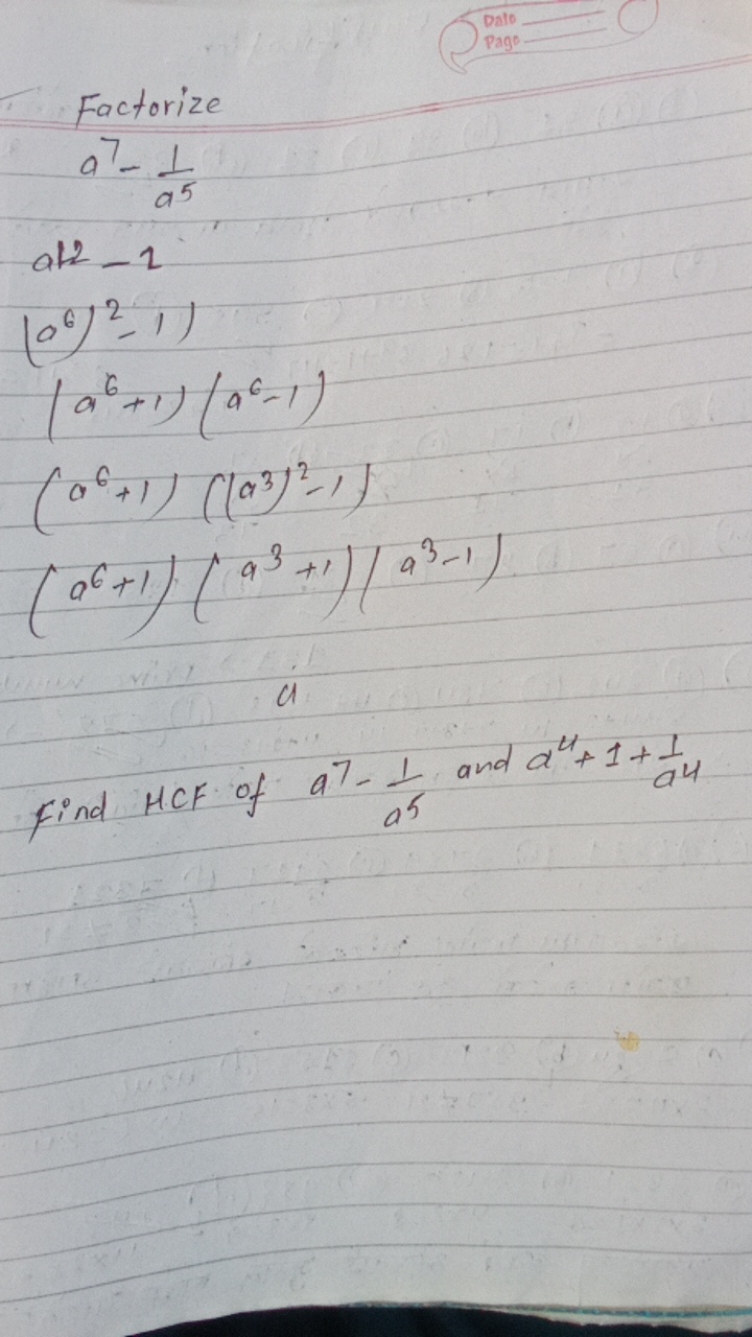 Date
Page
Factorize
a⁷ - 1/a⁵
a12 - 1
(a⁶)² - 1)
(a⁶+1) (a⁶-1)
(a⁶+1) ((a³)²-1)
(a⁶+1) (a³+1) (a³-1)
a
Find HCF of a⁷ - 1/a⁵ and a⁴ + 1 + 1/a⁴